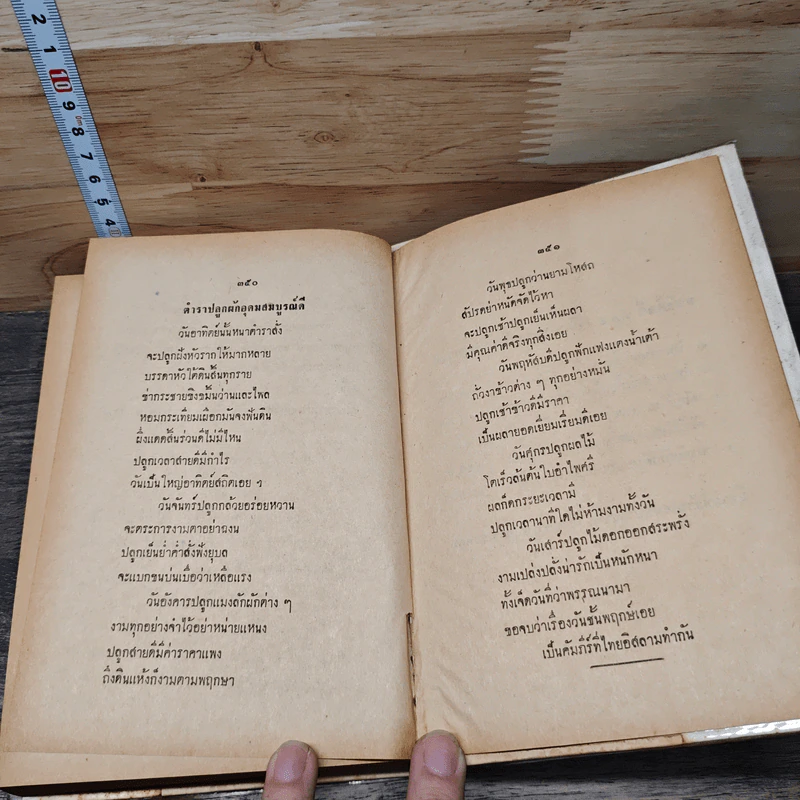 2
1
10
9
8
7
6
5
4
๓๕๐
ตำราปลูกผักอุดมสมบูรณ์ดี
วันอาทิตย์นั้นหนาตำราสั่ง
จะปลูกฝังหัวรากให้มากหลาย
บรรดาหัวใต้ดินสิ้นทุกราย
ข่ากระชายขิงขมิ้นว่านและไพล
หอมกระเทียมเผือกมันจงฟันดิน
ผึ่งแดดสิ้นร่วนดีไม่มีไหน
ปลูกเวลาสายดีมีกำไร
วันเป็นใหญ่อาทิตย์สถิตเอย ฯ
วันจันทร์ปลูกกล้วยอร่อยหวาน
จะตระการงามตาอย่าฉงน
ปลูกเย็นย่ำค่ำสั่งฟังยุบล
จะแบกขนบ่นเบื่อว่าเหลือแรง
วันอังคารปลูกแมงลักผักต่าง ๆ
งามทุกอย่างจำไว้อย่าหน่ายแหนง
ปลูกสายดีมีค่าราคาแพง
ถึงดินแห้งก็งามตามพฤกษา
๓๕๑
วันพุธปลูกว่านยามโหสถ
สัปรดย่าหนัดจัดไว้หา
จะปลูกเช้าปลูกเย็นเห็นผลา
มีคุณค่าดีจริงทุกสิ่งเอย
วันพฤหัสบดีปลูกฟักแฟงแตงน้ำเต้า
ถั่วงาข้าวต่าง ๆ ทุกอย่างหมั่น
ปลูกเช้าข้าวดีมีราคา
เป็นผลายอดเยี่ยมเรี่ยมดีเอย
วันศุกรปลูกผลไม้
โตเร็วลันต้นใบอำไพศรี
ผลก็ดกระยะเวลามี
ปลูกเวลานาทีใดไม่ห้ามงามทั้งวัน
วันเสาร์ปลูกไม้ดอกออกสระพรั่ง
งามเปล่งปลั่งน่ารักเป็นหนักหนา
ทั้งเจ็ดวันที่ว่าพรรณนามา
ขอจบว่าเรื่องวันชั้นพฤกษ์เอย
เป็นคัมภีร์ที่ไทยอิสลามทำกัน